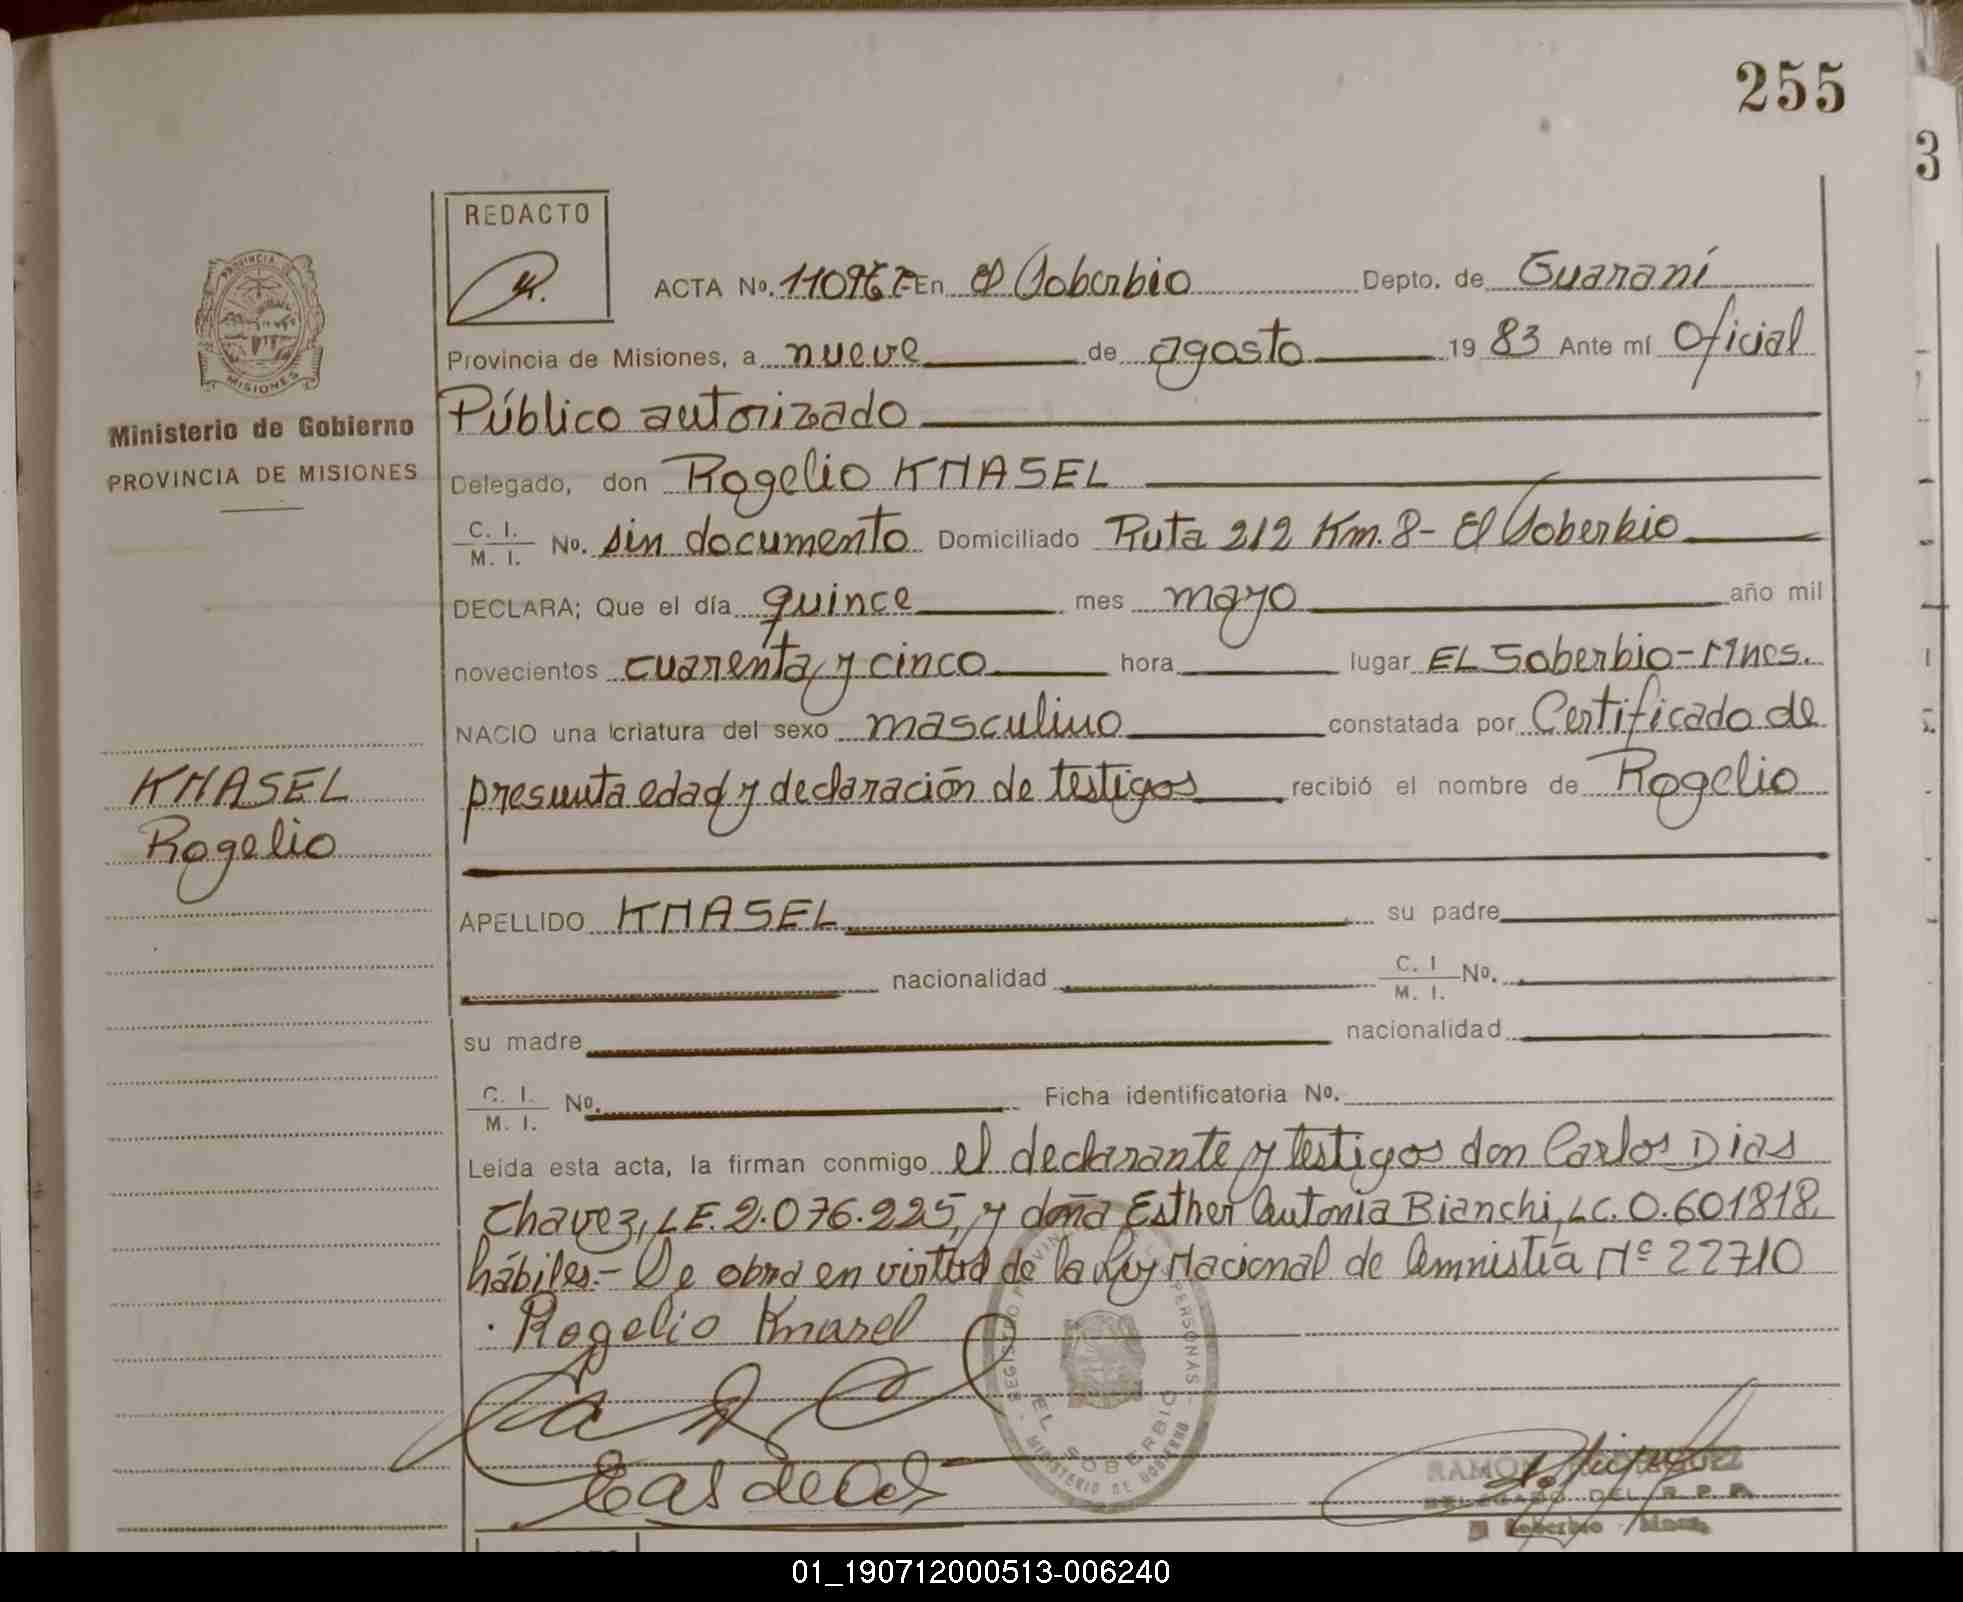 255
3
REDACTO
PROVINCIA DE
MISIONES
Ministerio de Gobierno
PROVINCIA DE MISIONES
ACTA No. 11096 En El Soberbio Depto. de Guaraní
Provincia de Misiones, a nueve de agosto 1983 Ante mí Oficial
Público autorizado
Delegado, don Rogelio KNASEL
C. I.
M. I. No. sin documento Domiciliado Ruta 212 Km. 8- El Soberbio
DECLARA; Que el día quince mes mayo año mil
novecientos cuarenta y cinco hora lugar EL Soberbio-Mnes.
NACIO una criatura del sexo masculino constatada por Certificado de
presunta edad y declaración de testigos recibió el nombre de Rogelio
KNASEL
Rogelio
APELLIDO KNASEL su padre
nacionalidad C. I
M. I. No.
su madre nacionalidad
C. I.
M. I. No. Ficha identificatoria No.
Leida esta acta, la firman conmigo el declarante y testigos don Carlos Dias
Chavez, L.E. 2.076.225, y doña Esther Antonia Bianchi, L.C. 0.601818,
hábiles.- Se obra en virtud de la Ley Nacional de Amnistía Nº 22710
Rogelio Knasel
REGISTRO PROVINCIAL PERSONAS
EL SOBERBIO
MINISTERIO DE GOBIERNO
RAMON
DELEGADO DEL R. P. P.
El Soberbio - Mnes.
01_190712000513-006240